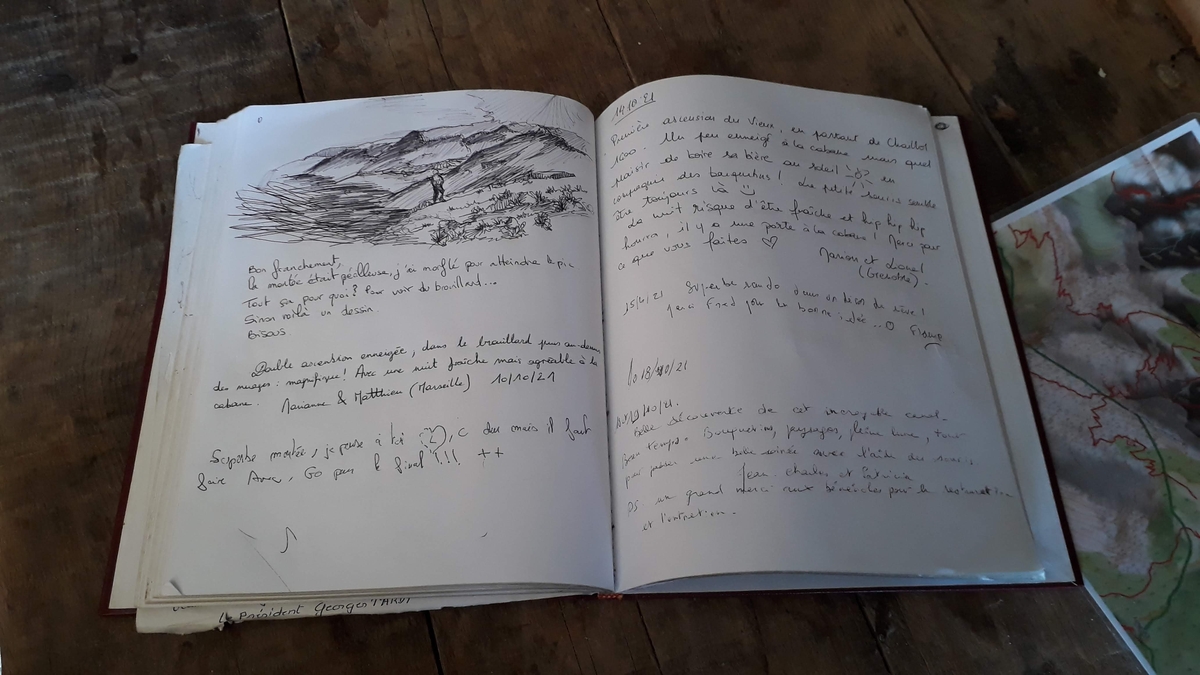 Bon franchement,
la montée était périlleuse, j'ai morflé pour atteindre le pic
Tout ça pour quoi? Pour voir du brouillard...
Sinon voilà un dessin.
Bisous
Double ascension enneigée, dans le brouillard puis au-dessus
des nuages : magnifique! Avec une nuit fraîche mais agréable à la
cabane. Marianne & Matthieu (Marseille) 10/10/21
Superbe montée, je pense à toi, c dur mais il faut
faire, Go pour le final !!! ++
Le Président Georges TARDY
14.10.21
Première ascension du Vieux, en partant de Chaillol
1600. Un peu enneigé à la cabane mais quel
plaisir de boire sa bière au soleil en
compagnie des bouquetins! La petite souris semble
être toujours là
La nuit risque d'être fraîche et hip hip hip
hourra, il y a une porte à la cabane! Merci pour
ce que vous faites ♡
Marion et Lionel
(Grenoble).
Superbe rando dans un décor de rêve!
Merci Fred pour la bonne idée...
18/10/21
19/10/21.
Belle découverte de cet incroyable
Beau temps. Bouquetins, paysages, pleine lune, tout
pour passer une belle soirée avec l'aide du souris
Jean Charles et Patricia
PS: un grand merci aux bénévoles pour la restauration
et l'entretien.